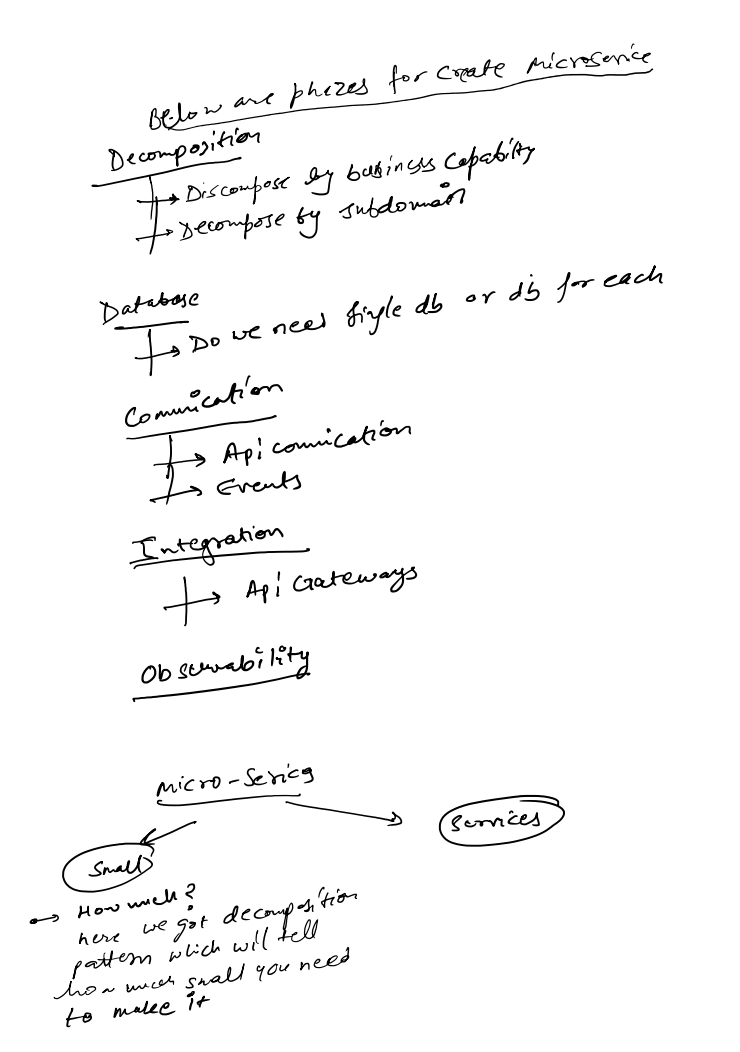 Below are phezes for create microservice
Decomposition
Discompose by business capability
Decompose by subdomain
Database
Do we need single db or db for each
Comunication
Api comnication
Events
Integration
Api Gateways
Observability
Micro-Serics
Small
Services
How much?
here we got decomposition
pattern which will tell
how much small you need
to make it